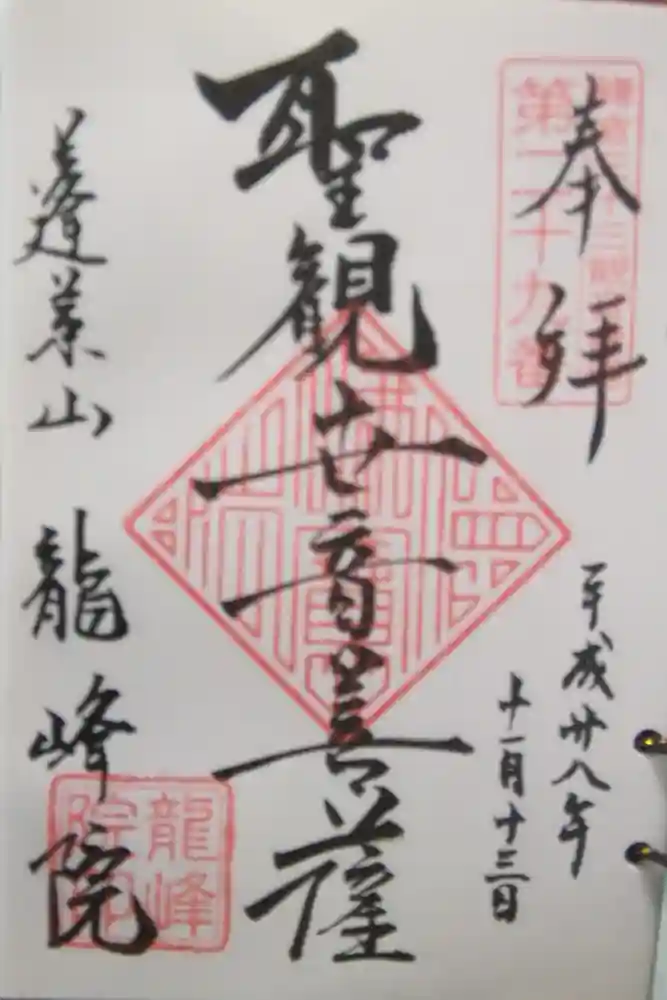 奉拝
第二十九番
平成廿八年
十一月十三日
聖観世音菩薩
蓬莱山 龍峰院
龍峰
院印